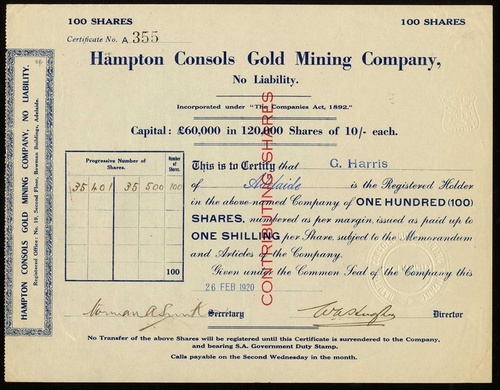 100 SHARES
100 SHARES
Certificate No. A 355
Hampton Consols Gold Mining Company,
No Liability.
Incorporated under "The Companies Act, 1892."
Capital: £60,000 in 120,000 Shares of 10/- each.
HAMPTON CONSOLS GOLD MINING COMPANY, NO LIABILITY.
Registered Office: No. 10, Second Floor, Bowman Buildings, Adelaide.
Progressive Number of Shares.
Number of Shares.
35 401 35 500 100
100
CONTRIBUTING SHARES
This is to Certify that G. Harris
of Adelaide is the Registered Holder
in the above-named Company of ONE HUNDRED (100)
SHARES, numbered as per margin, issued as paid up to
ONE SHILLING per Share, subject to the Memorandum
and Articles of the Company.
Given under the Common Seal of the Company this
26 FEB 1920
Secretary
Director
No Transfer of the above Shares will be registered until this Certificate is surrendered to the Company,
and bearing S.A. Government Duty Stamp.
Calls payable on the Second Wednesday in the month.